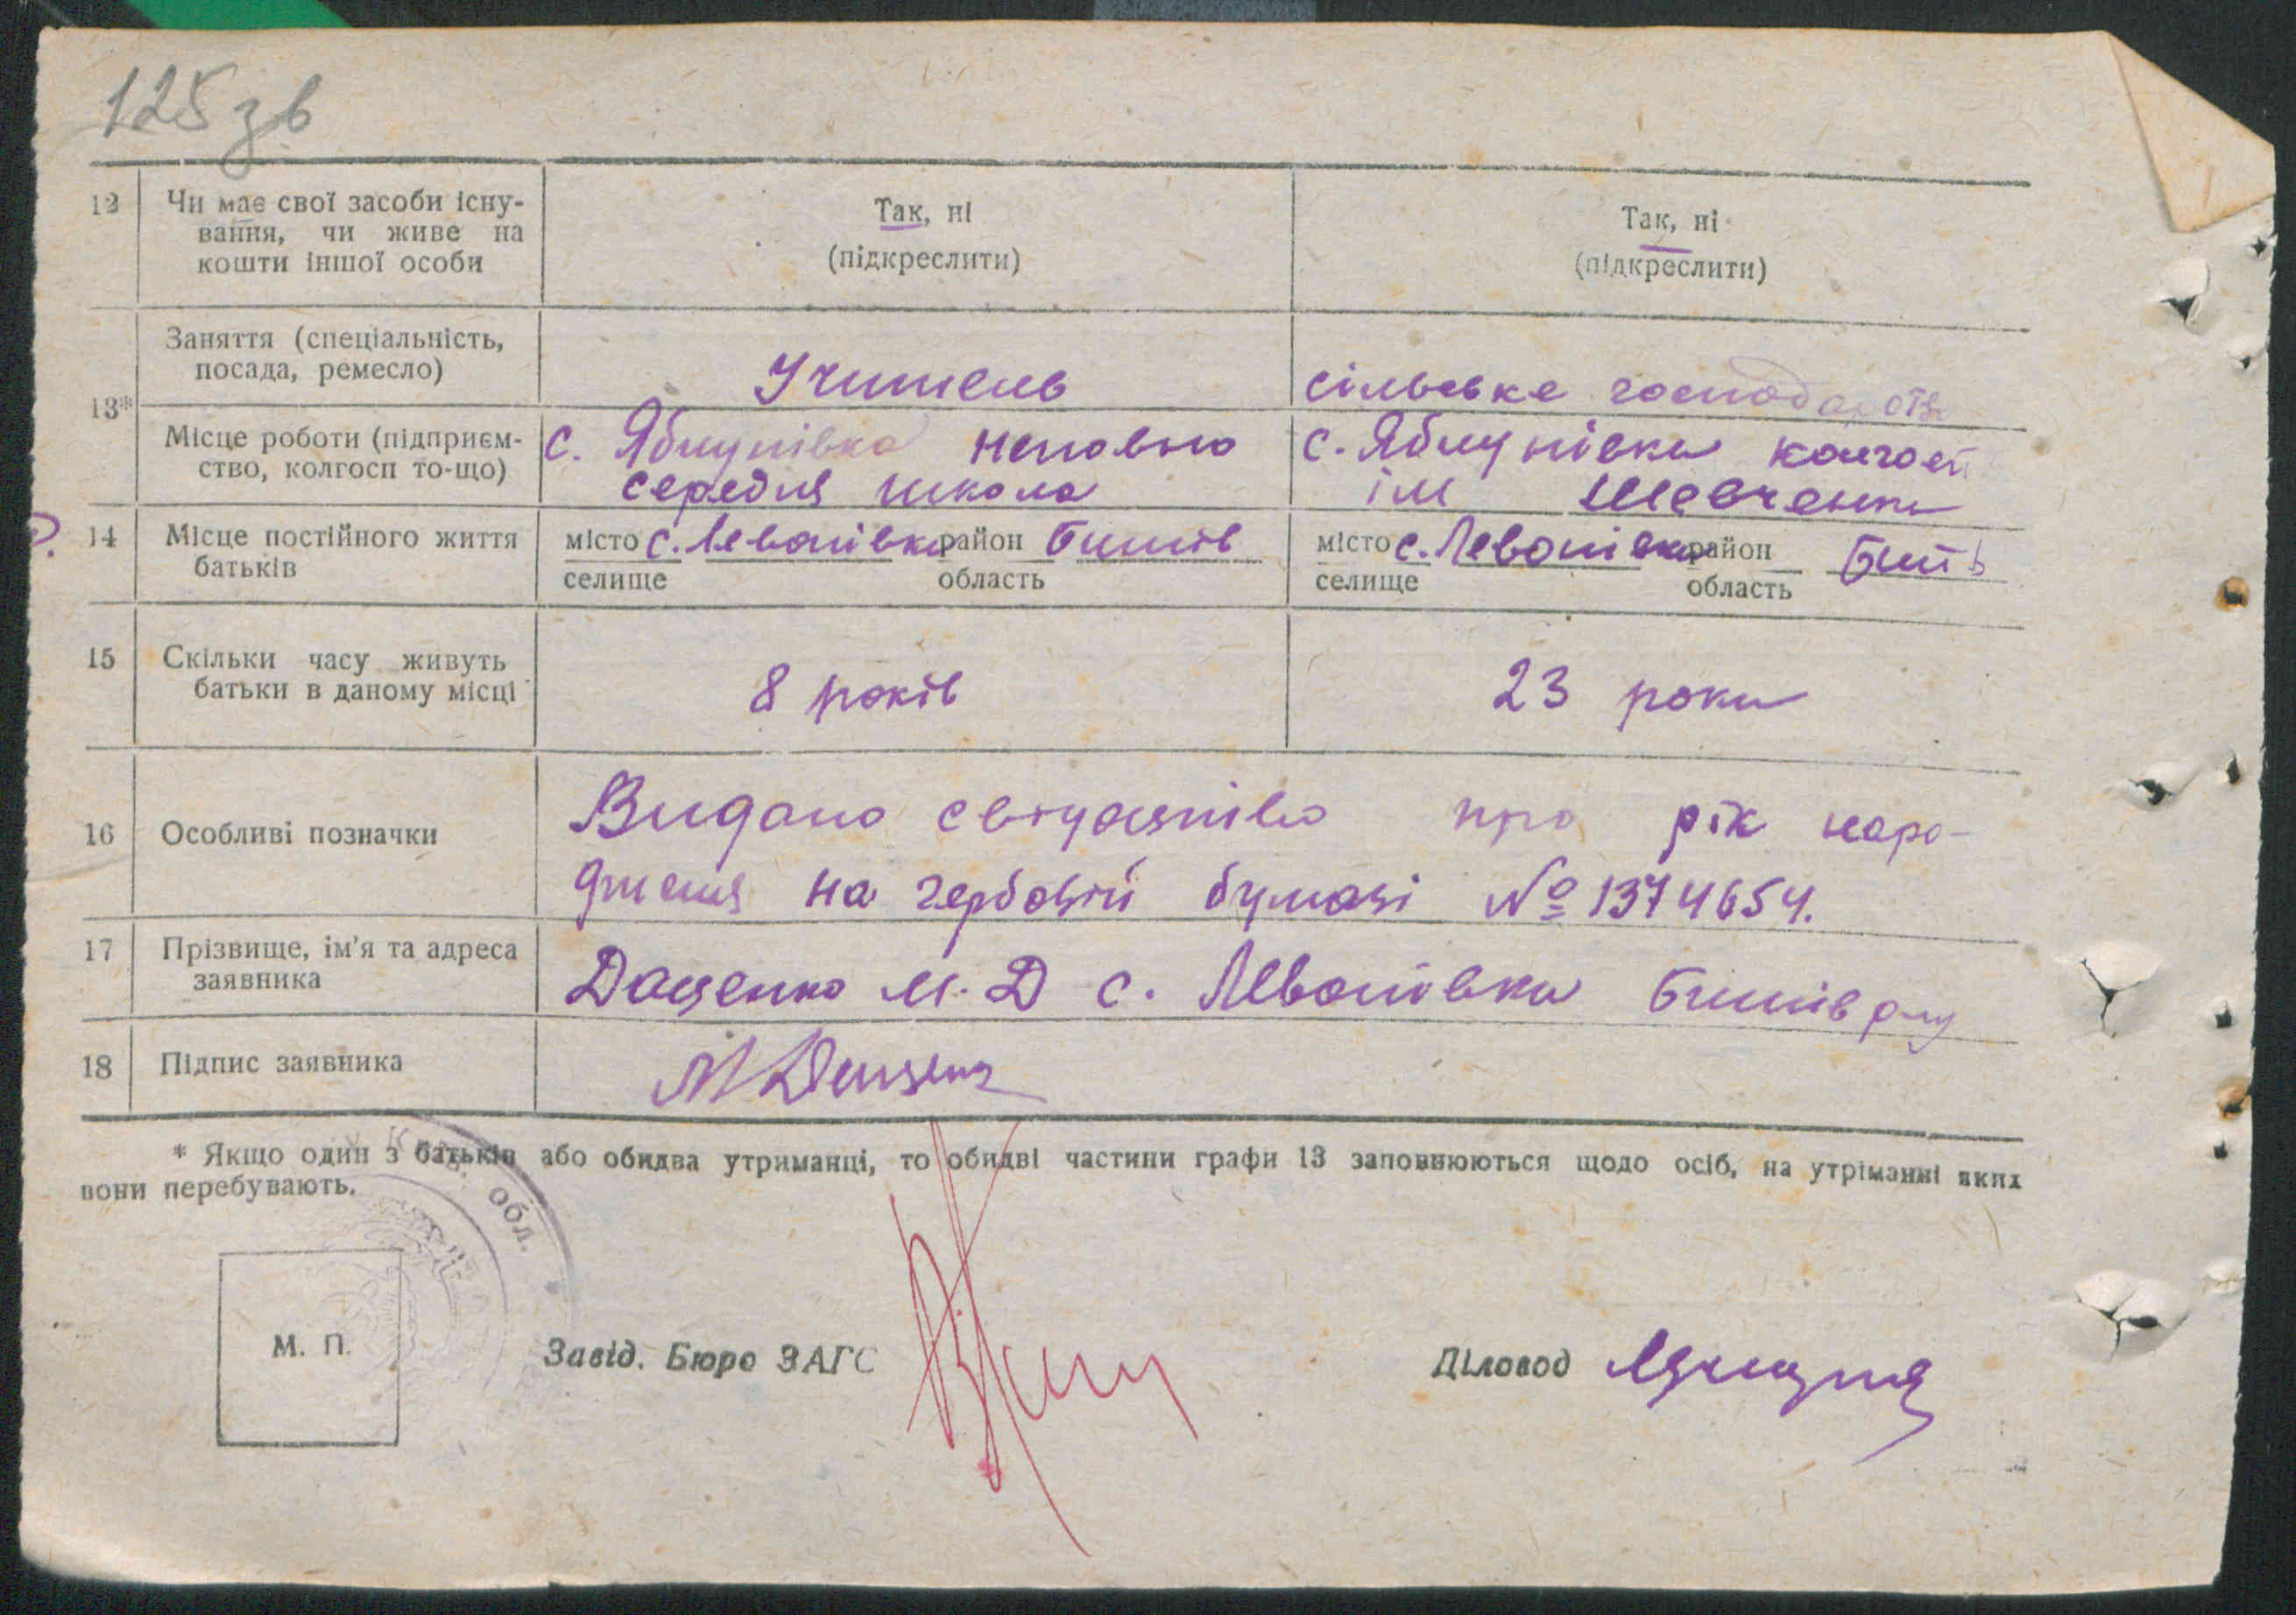 125 зв
12 Чи має свої засоби існу-
вання, чи живе на
кошти іншої особи
Так, ні
(підкреслити)
Так, ні
(підкреслити)
13*
Заняття (спеціальність,
посада, ремесло)
Учитель
сільське господарств
Місце роботи (підприєм-
ство, колгосп то-що)
с. Яблунівка неповно
середня школа
с. Яблунівка колгосп
ім Шевченка
14 Місце постійного життя
батьків
місто с. Леонівка район Бишів
селище область
місто с. Леонівка район Биш в
селище область
15 Скільки часу живуть
батьки в даному місці
8 років
23 роки
16 Особливі позначки
Видано свідоцтво про рік наро-
дження на гербовій бумазі № 1374654.
17 Прізвище, ім'я та адреса
заявника
Даценко М. Д с. Бишів р-ну
18 Підпис заявника
М Даценко
* Якщо один з батьків або обидва утриманці, то обидві частини графи 13 заповнюються щодо осіб, на утріманні яких
вони перебувають.
обл.
М. П.
Завід. Бюро ЗАГС
Діловод